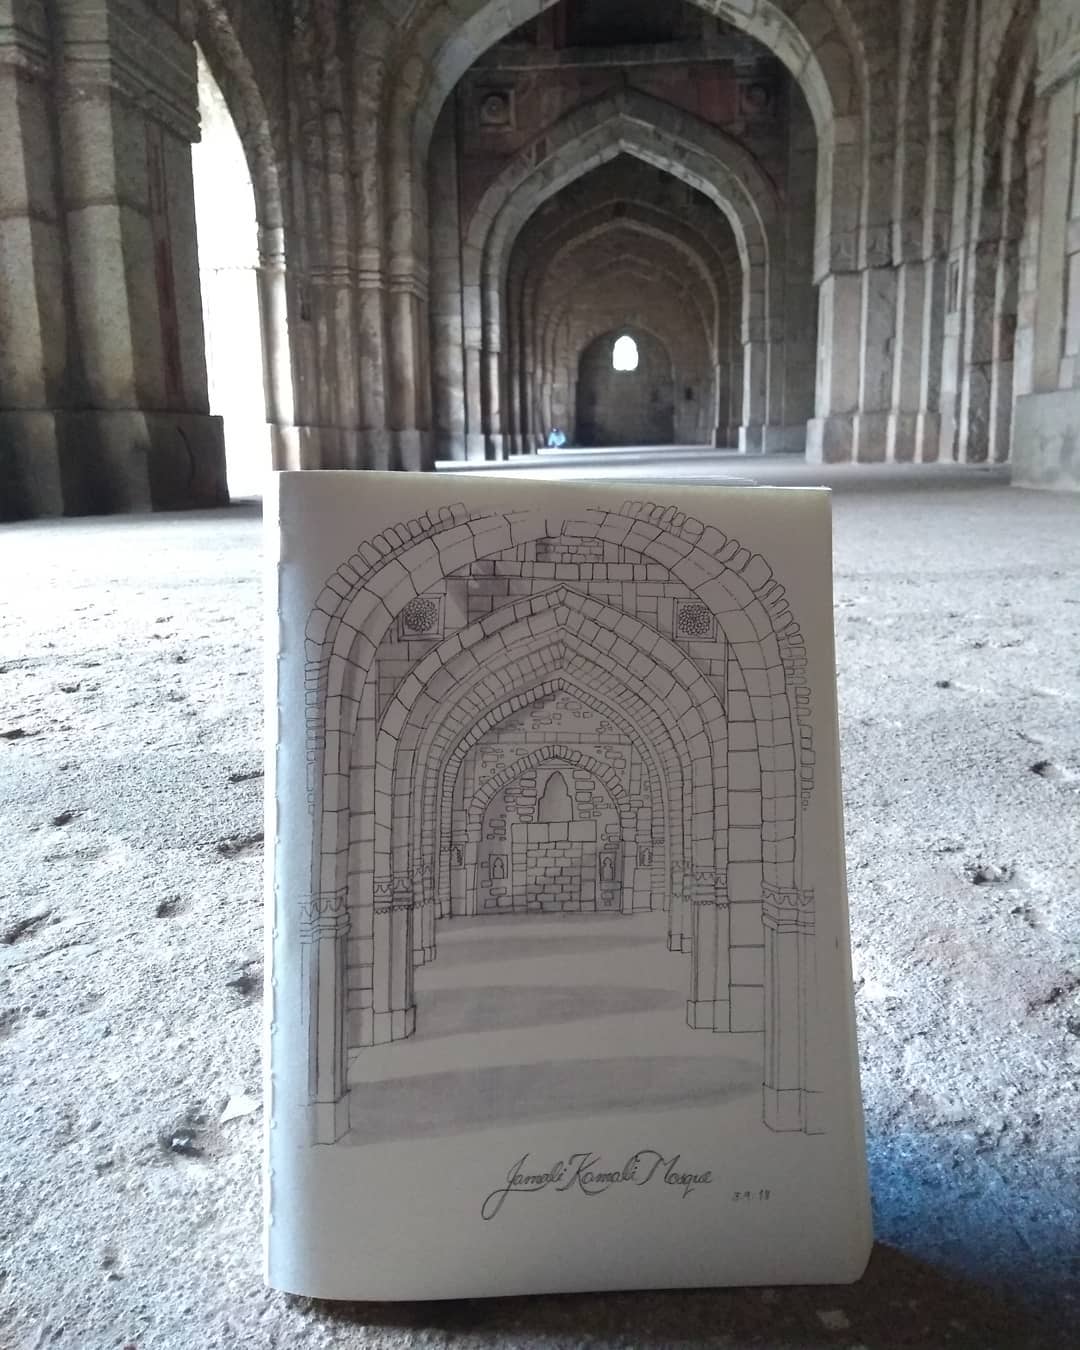 Jamali Kamali Mosque
8.9.18